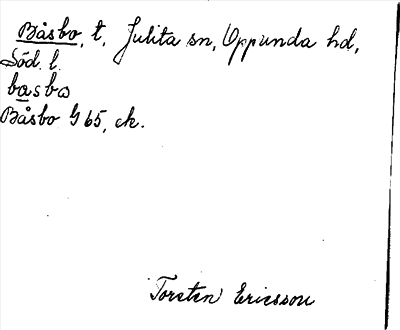 Båsbo, t, Julita sn, Oppunda hd,
Söd. l.
basbω
Båsbo G 65, ek.
Torsten Ericsson